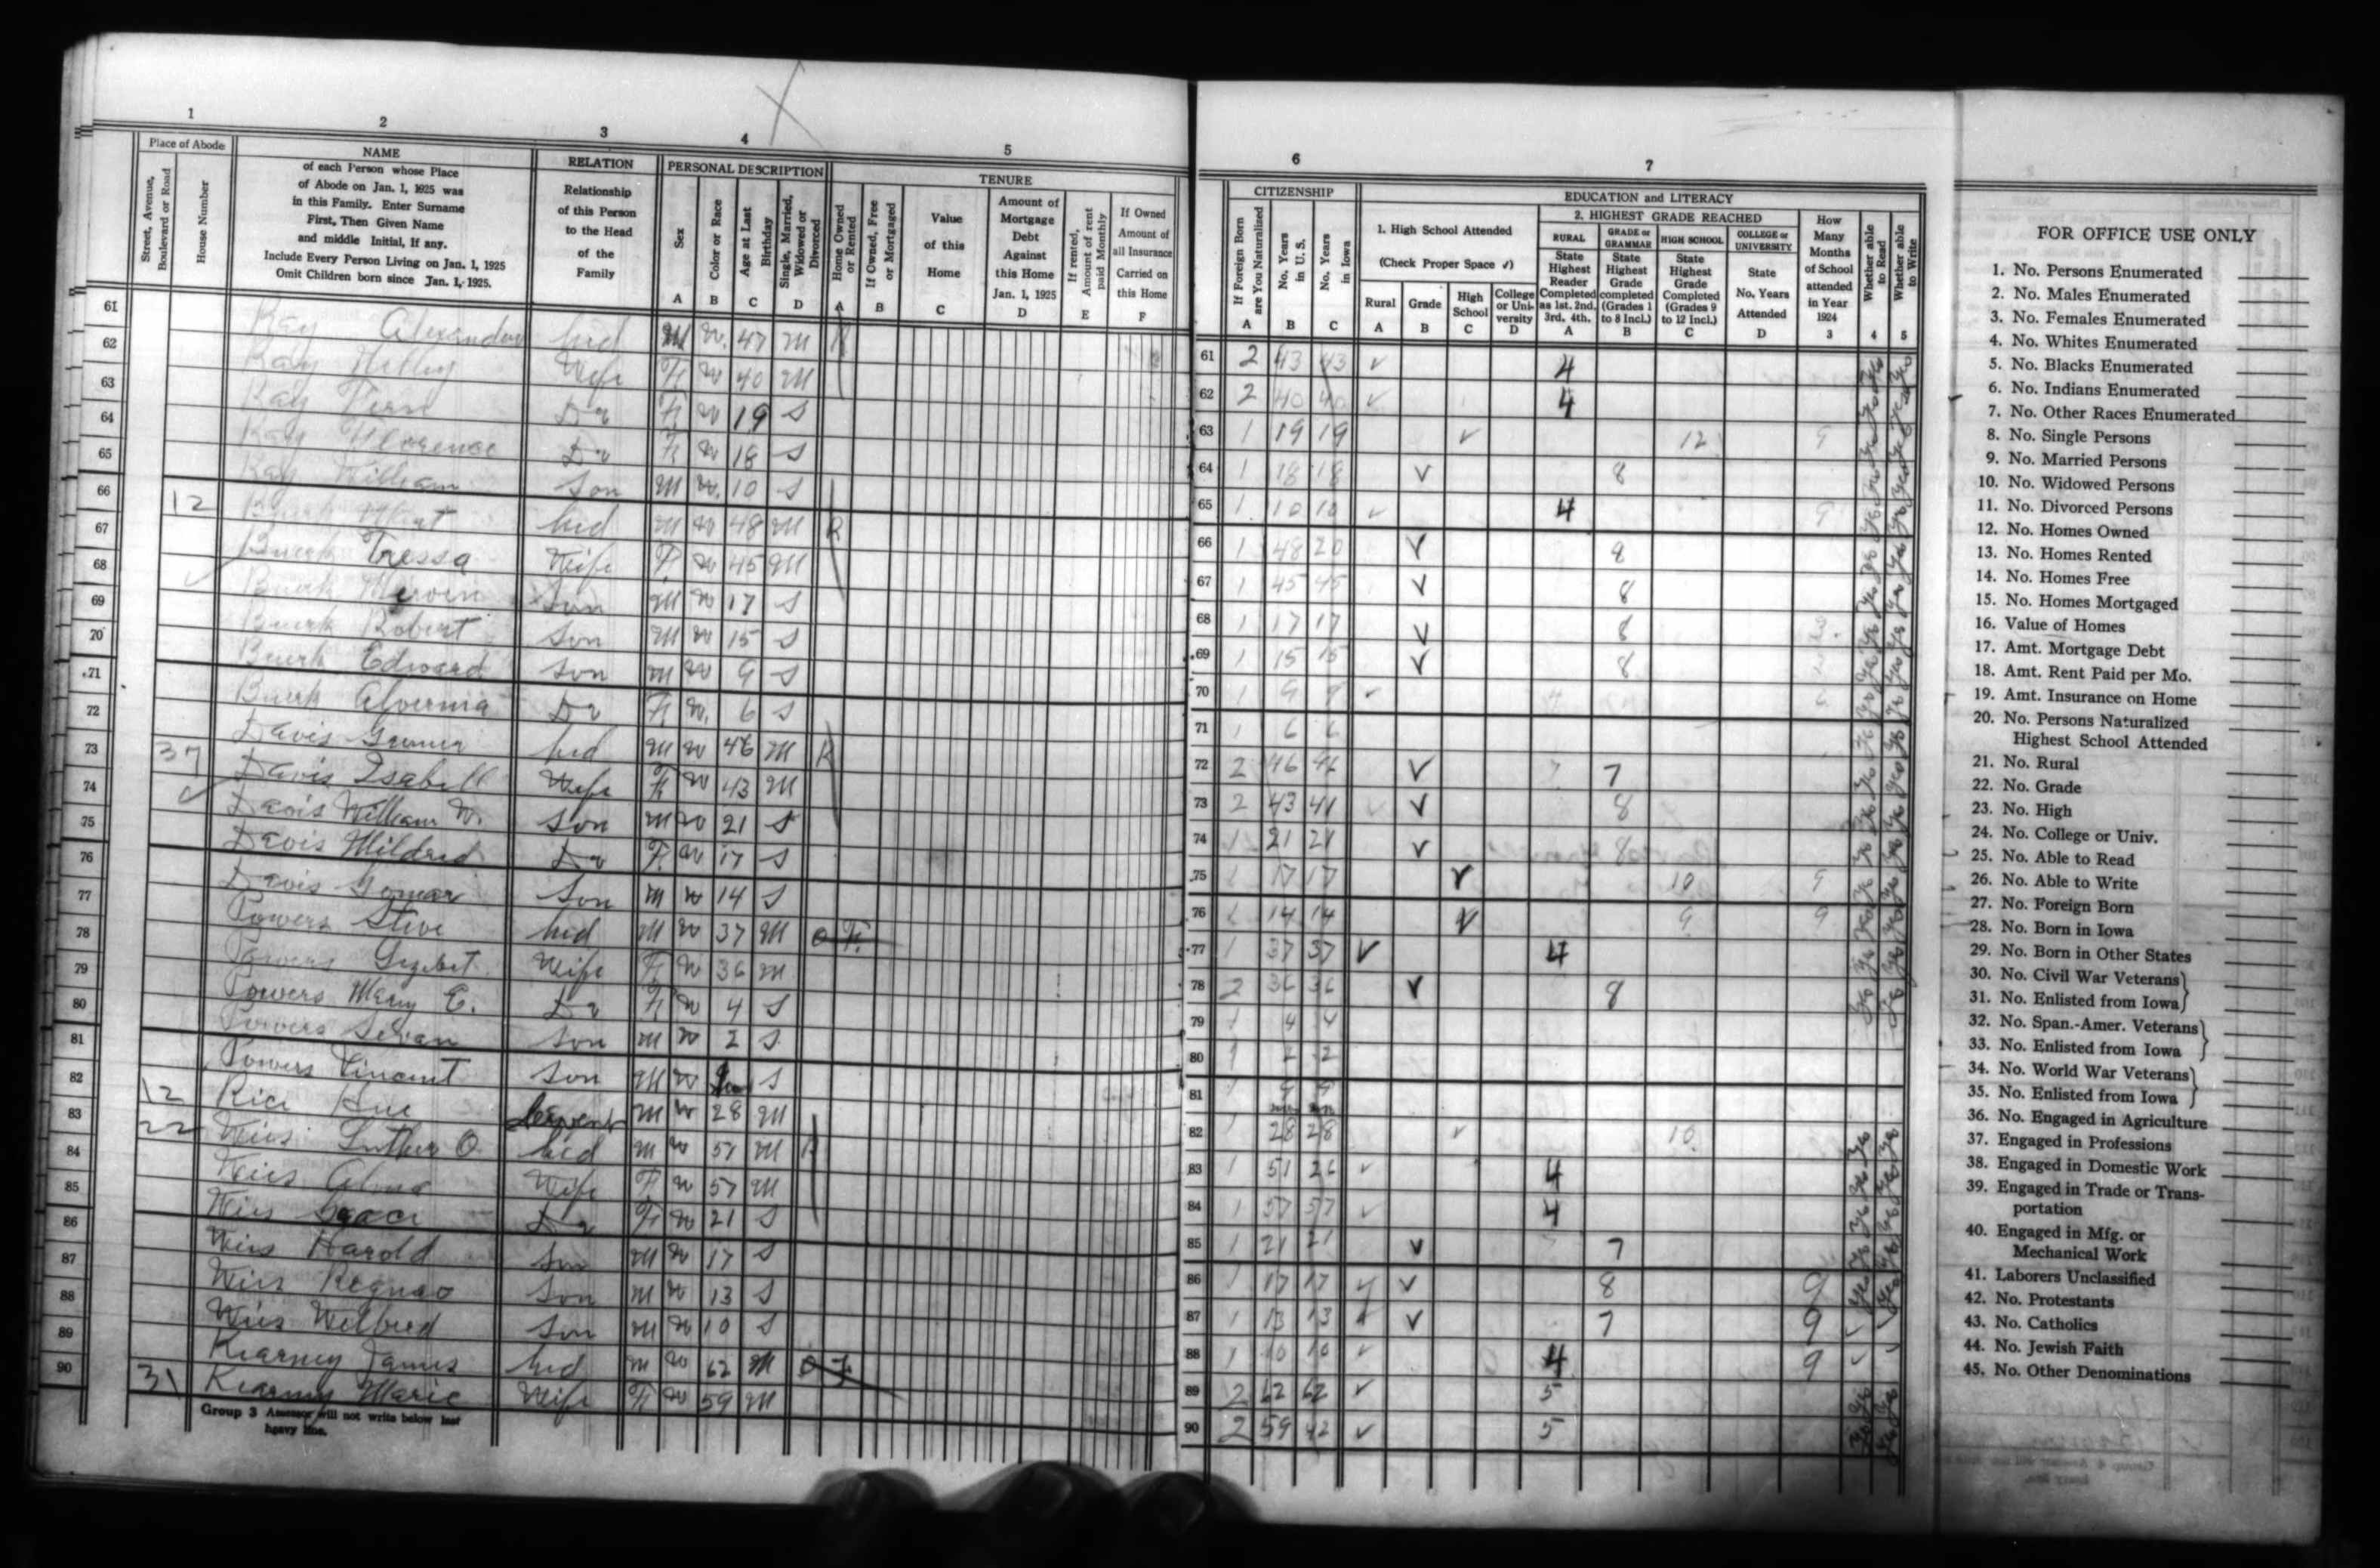 1 2 3 4 5
Place of Abode
Street, Avenue, Boulevard or Road
House Number
NAME
of each Person whose Place
of Abode on Jan. 1, 1925 was
in this Family. Enter Surname
First, Then Given Name
and middle Initial, If any.
Include Every Person Living on Jan. 1, 1925
Omit Children born since Jan. 1, 1925.
RELATION
Relationship
of this Person
to the Head
of the
Family
PERSONAL DESCRIPTION
Sex A
Color or Race B
Age at Last Birthday C
Single, Married, Widowed or Divorced D
TENURE
Home Owned or Rented A
If Owned, Free or Mortgaged B
Value of this Home C
Amount of Mortgage Debt Against this Home Jan. 1, 1925 D
If rented, Amount of rent paid Monthly E
If Owned Amount of all Insurance Carried on this Home F
61 Kay Alexander hed M W. 47 M R
62 Kay Nelley Wife F W 40 M
63 Kay Fern Da F W 19 S
64 Kay Florence Da F W 18 S
65 Kay William Son M W. 10 S
66 12 Buerk hed M W 48 M R
67 Buerk Tressa Wife F W 45 M
68 Buerk Mervin Son M W 17 S
69 Buerk Robert Son M W 15 S
20 Buerk Edward Son M W 9 S
71 Buerk Alvernia Da F W. 6 S
72 Davis hed M W 46 M R
73 37 Davis Isabell Wife F W 43 M
74 Davis William W. Son M W 21 S
75 Davis Mildred Da F W 17 S
76 Davis Gomar Son M W 14 S
77 Powers Steve hed M W 37 M O F
78 Powers Wife F W 36 M
79 Powers Mary E. Da F W 4 S
80 Powers Son M W 2 S
81 Powers Vincent Son M W S
82 12 Rice Servent M W 28 M
83 22 Wiis Luther O. hed M W 51 M R
84 Wiis Alma Wife F W 57 M
85 Wiis Grace Da F W 21 S
86 Wiis Harold Son M W 17 S
87 Wiis Son M W 13 S
88 Wiis Wilbred Son M W 10 S
89 Kearney James hed M W 62 M O F
90 31 Kearney Marie Wife F W 59 M
Group 3 Assessor will not write below last
heavy line.
6 7
CITIZENSHIP
If Foreign Born are You Naturalized A
No. Years in U. S. B
No. Years in Iowa C
EDUCATION and LITERACY
1. High School Attended
(Check Proper Space ✓)
Rural A
Grade B
High School C
College or University D
2. HIGHEST GRADE REACHED
RURAL State Highest Reader Completed as 1st. 2nd. 3rd. 4th. A
GRADE or GRAMMAR State Highest Grade completed (Grades 1 to 8 Incl.) B
HIGH SCHOOL State Highest Grade Completed (Grades 9 to 12 Incl.) C
COLLEGE or UNIVERSITY State No. Years Attended D
How Many Months of School attended in Year 1924 3
Whether able to Read 4
Whether able to Write 5
61 2 43 43 ✓ 4 Yes Yes
62 2 40 40 ✓ 4 Yes Yes
63 1 19 19 ✓ 12 9 Yes Yes
64 1 18 18 ✓ 8 Yes Yes
65 1 10 10 ✓ 4 9 Yes Yes
66 1 48 20 ✓ 8 Yes Yes
67 1 45 45 ✓ 8 Yes Yes
68 1 17 17 ✓ 8 Yes Yes
69 1 15 15 ✓ 8 Yes Yes
70 1 9 9 ✓ 4 Yes Yes
71 1 6 6
72 2 46 46 ✓ 7 Yes Yes
73 2 43 41 ✓ 8 Yes Yes
74 1 21 21 ✓ 8 Yes Yes
75 1 17 17 ✓ 10 9 Yes Yes
76 1 14 14 ✓ 9 9 Yes Yes
77 1 37 37 ✓ 4 Yes Yes
78 2 36 36 ✓ 8 Yes Yes
79 1 4 4
80 1 2 2
81 1 9 9
82 1 28 28 ✓ 10 Yes Yes
83 1 51 26 ✓ 4 Yes Yes
84 1 57 57 ✓ 4 Yes Yes
85 1 21 21 ✓ 7 Yes Yes
86 1 17 17 ✓ ✓ 8 9 Yes Yes
87 1 13 13 ✓ ✓ 7 9 ✓ ✓
88 1 10 10 ✓ 4 9 ✓ ✓
89 2 62 62 ✓ 5 Yes Yes
90 2 59 42 ✓ 5 Yes Yes
FOR OFFICE USE ONLY
1. No. Persons Enumerated
2. No. Males Enumerated
3. No. Females Enumerated
4. No. Whites Enumerated
5. No. Blacks Enumerated
6. No. Indians Enumerated
7. No. Other Races Enumerated
8. No. Single Persons
9. No. Married Persons
10. No. Widowed Persons
11. No. Divorced Persons
12. No. Homes Owned
13. No. Homes Rented
14. No. Homes Free
15. No. Homes Mortgaged
16. Value of Homes
17. Amt. Mortgage Debt
18. Amt. Rent Paid per Mo.
19. Amt. Insurance on Home
20. No. Persons Naturalized
Highest School Attended
21. No. Rural
22. No. Grade
23. No. High
24. No. College or Univ.
25. No. Able to Read
26. No. Able to Write
27. No. Foreign Born
28. No. Born in Iowa
29. No. Born in Other States
30. No. Civil War Veterans
31. No. Enlisted from Iowa
32. No. Span.-Amer. Veterans
33. No. Enlisted from Iowa
34. No. World War Veterans
35. No. Enlisted from Iowa
36. No. Engaged in Agriculture
37. Engaged in Professions
38. Engaged in Domestic Work
39. Engaged in Trade or Trans-
portation
40. Engaged in Mfg. or
Mechanical Work
41. Laborers Unclassified
42. No. Protestants
43. No. Catholics
44. No. Jewish Faith
45. No. Other Denominations